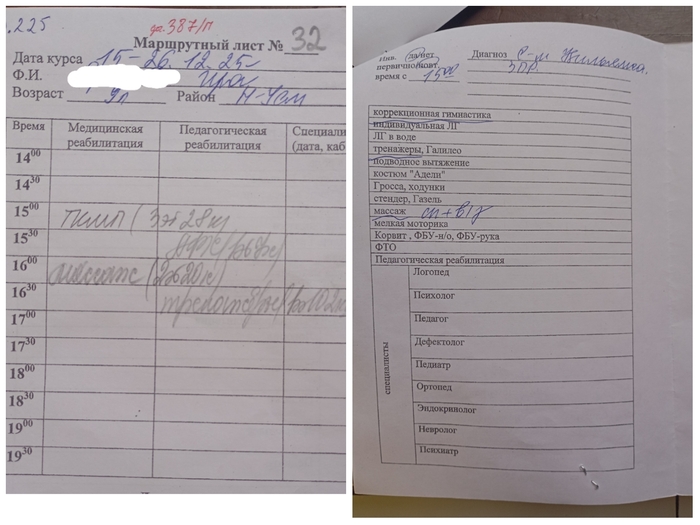 225
387/П
Маршрутный лист № 32
Дата курса 15-26.12.25г
Ф.И.
Возраст 9л Район
Время Медицинская реабилитация Педагогическая реабилитация Специали (дата, каб
14⁰⁰
14³⁰
15⁰⁰
15³⁰
16⁰⁰ массаж
16³⁰
17⁰⁰
17³⁰
18⁰⁰
18³⁰
19⁰⁰
19³⁰
Инв. да/нет Диагноз С-м Вильямса.
первично/повт ЗПР.
время с 15⁰⁰
коррекционная гимнастика
индивидуальная ЛГ
ЛГ в воде
тренажеры, Галилео
подводное вытяжение
костюм "Адели"
Гросса, ходунки
стендер, Газель
массаж
мелкая моторика
Корвит , ФБУ-н/о, ФБУ-рука
ФТО
Педагогическая реабилитация
специалисты
Логопед
Психолог
Педагог
Дефектолог
Педиатр
Ортопед
Эндокринолог
Невролог
Психиатр